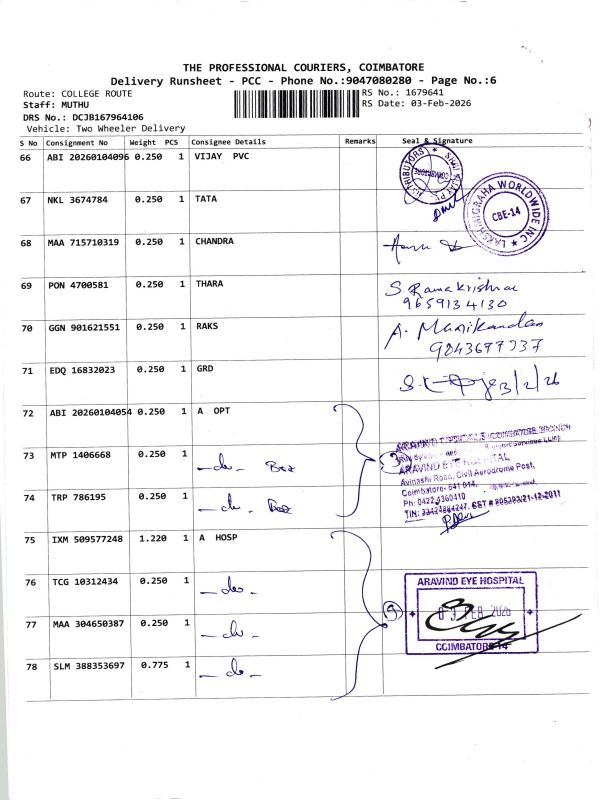 THE PROFESSIONAL COURIERS, COIMBATORE
Delivery Runsheet - PCC - Phone No.:9047080280 - Page No.:6
Route: COLLEGE ROUTE
RS No.: 1679641
Staff: MUTHU
RS Date: 03-Feb-2026
DRS No.: DCJB167964106
Vehicle: Two Wheeler Delivery
S No Consignment No Weight PCS Consignee Details Remarks Seal & Signature
66 ABI 20260104096 0.250 1 VIJAY PVC
COIMBATORE
LAKSHANIGRAHA WORLDWIDE INC
CBE-14
67 NKL 3674784 0.250 1 TATA
68 MAA 715710319 0.250 1 CHANDRA
69 PON 4700581 0.250 1 THARA
S. Ramakrishnan
9659134130
70 GGN 901621551 0.250 1 RAKS
A. Manikandan
9843677737
71 EDQ 16832023 0.250 1 GRD
3/2/26
72 ABI 20260104054 0.250 1 A OPT
73 MTP 1406668 0.250 1 -do- Box
3
ARAVIND EYE HOSPITAL
Avinashi Road, Civil Aerodrome Post,
Coimbatore- 641 014.
Ph: 0422 4360410
74 TRP 786195 0.250 1 -do- Box
75 IXM 509577248 1.220 1 A HOSP
76 TCG 10312434 0.250 1 -do-
ARAVIND EYE HOSPITAL
03 FEB 2026
COIMBATORE-14
77 MAA 304650387 0.250 1 -do-
78 SLM 388353697 0.775 1 -do-